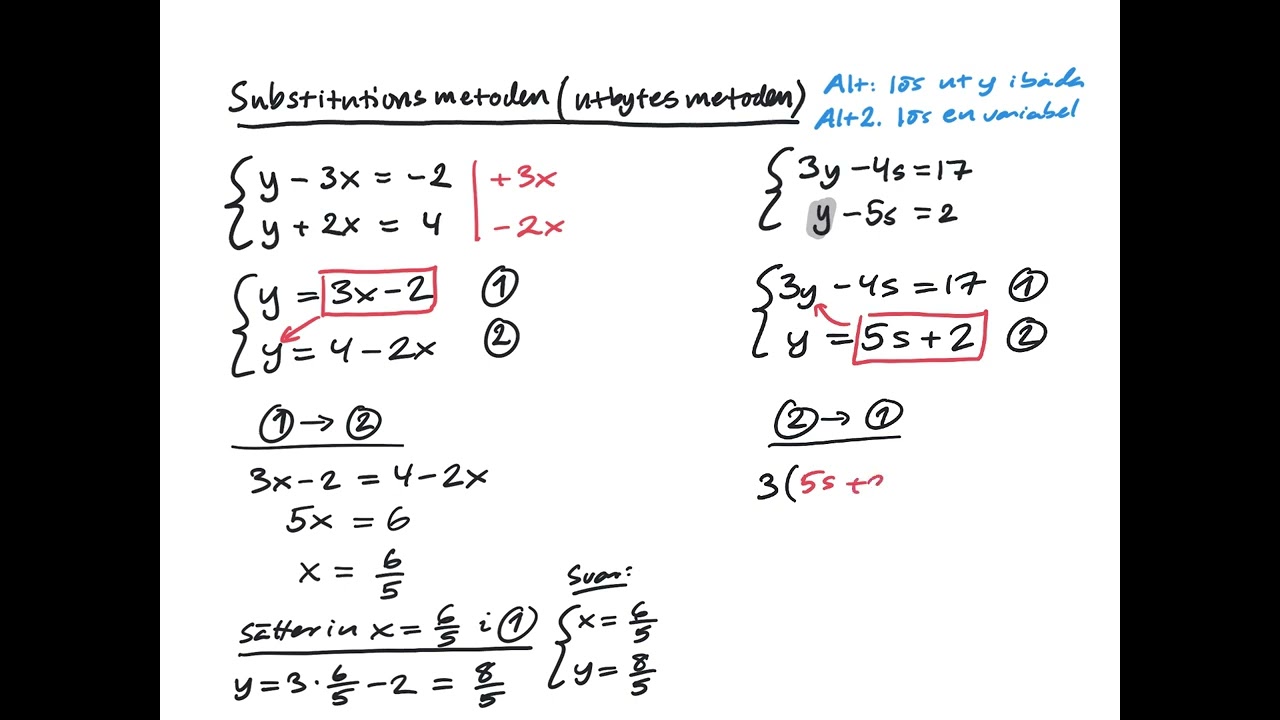 Substitutions metoden (utbytes metoden)
Alt: lös ut y i båda
Alt 2. lös en variabel
y - 3x = -2 | +3x
y + 2x = 4 | -2x
y = 3x - 2 ①
y = 4 - 2x ②
① → ②
3x - 2 = 4 - 2x
5x = 6
x = 6/5
sätter in x = 6/5 i ①
y = 3 · 6/5 - 2 = 8/5
Svar:
x = 6/5
y = 8/5
3y - 4s = 17
y - 5s = 2
3y - 4s = 17 ①
y = 5s + 2 ②
② → ①
3(5s +